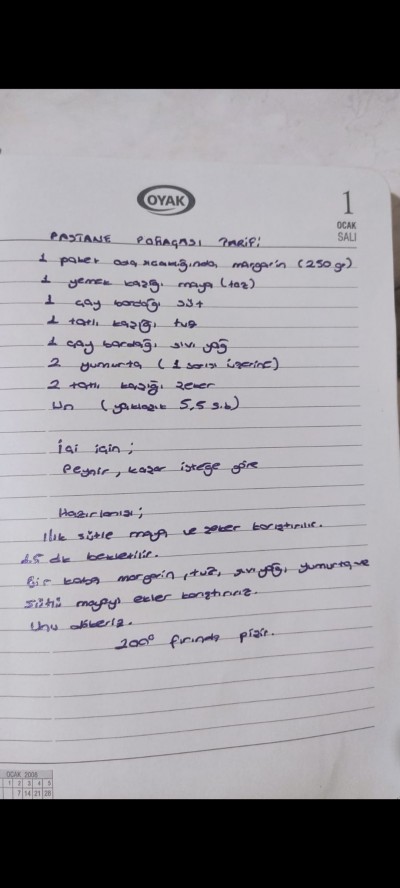 OYAK
1
OCAK
SALI
PASTANE POĞAÇASI TARİFİ
1 paket oda sıcaklığında margarin (250 gr)
1 yemek kaşığı maya (toz)
1 çay bardağı süt
1 tatlı kaşığı tuz
1 çay bardağı sıvı yağ
2 yumurta (1 sarısı üzerine)
2 tatlı kaşığı şeker
Un (yaklaşık 5,5 s.b)
İçi için;
Peynir, kaşar isteğe göre
Hazırlanışı;
Ilık sütle maya ve şeker karıştırılır.
1.5 dk bekletilir.
Bir kaba margarin, tuz, sıvı yağı, yumurta ve
sütlü mayayı ekler karıştırırız.
Unu dökeriz.
200° fırında pişir.
OCAK 2008
1 2 3 4 5
7 14 21 28